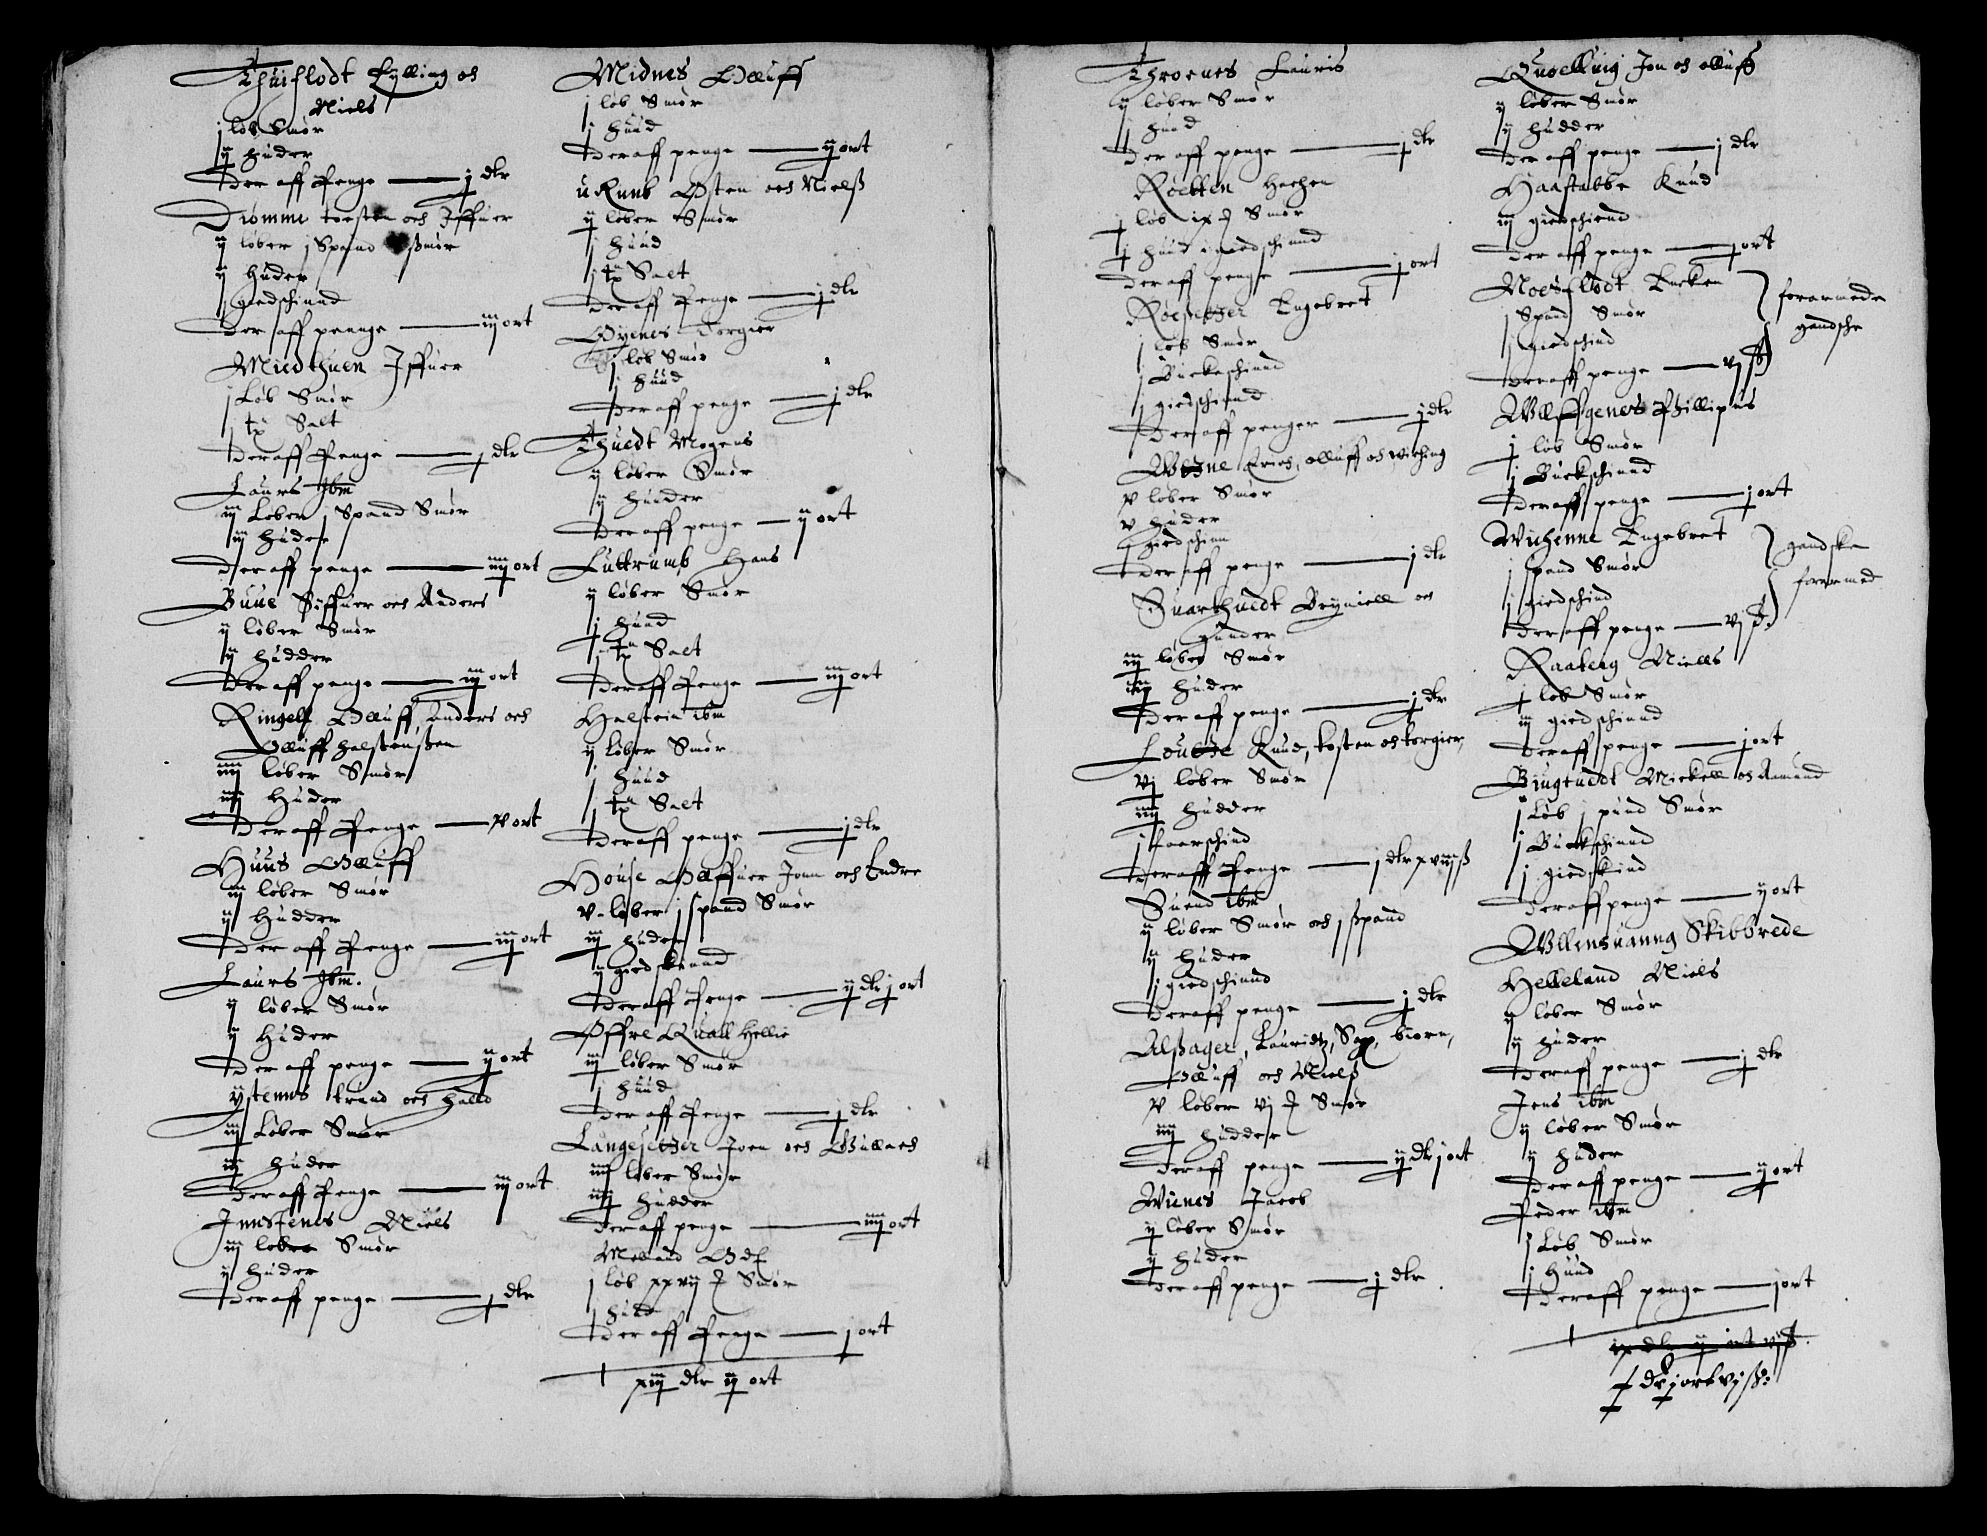 Thuiflodt Eylling och
Niels
j løb Smør
ij Huder
Der aff Penge — j dlr
Dromme torsten och Iffuer
ij løber j Spand Smør
ij Huder
j giedschind
Der aff penge — iij ort
Miedthuen Iffuer
j Løb Smør
j tø Salt
Der aff Penge — j dlr
Laurs Ibm
iij Løber j Spand Smør
iij Huder
Der aff penge — iiij ort
Buue Siffuer och Anders
ij løber Smør
ij Hudder
Der aff penge — iij ort
Oluff, Anders och
Oluff Halstenßen
iiij løber Smør
iiij Huder
Der aff Penge — v ort
Huus Oluff
iij løber Smør
ij Hudder
Der aff Penge — iij ort
Laurs Ibm.
ij løber Smør
ij Huder
Der aff penge — ij ort
ystenns trund och
iij Løber Smør
iij Huder
Der aff Penge — iij ort
Innstenes Niels
iij løber Smør
ij Huder
Der aff penge — j dlr
Midnes Oluff
j løb Smør
j Huud
Der aff penge — ij ort
Østen och Nielß
ij løber Smør
j Huud
j tø Salt
Der aff Penge — j dlr
Øyenes Torgier
j løb Smør
j Huud
Der aff penge — j dlr
Thuedt Mogens
ij løber Smør
ij Huuder
Der aff penge — ij ort
Luttrumb Hans
ij løber Smør
j Huud
j tø Salt
Der aff Penge — iij ort
Halstein ibm
ij løber Smør
j Huud
j tø Salt
Der aff penge — j dlr
House Jonn och Endre
v løber j spand Smør
iij Huder
ij giedskinnd
Der aff Penge — ij dlr j ort
Øffre Quall Hellie
iij løber Smør
j Huud
Der aff Penge — j dlr
Langesetter Joen och
iiij løber Smør
iiij Hudder
Der aff penge — iiij ort
j løb xxvij Smør
j Hud
Der aff Penge — j ort
xiij dlr ij ort
Throenes Lauris
ij løber Smør
j Huud
Der aff penge — j dlr
Roetten
j løb ix Smør
j Huud j giedschinnd
Der aff penge — j ort
Engebret
j løb Smør
j Buckeschinnd
j giedschinnd
Der aff penger — j dlr
Erich, Olluff och Wiching
v løber Smør
v Huder
j giedschinn
Der aff penge — j dlr
Suarthuedt Brynniell och
Gunder
iij løber Smør
iij Huder
Der aff penge — j dlr
Knud, tosten och torgier,
vj løber Smør
iiij Hudder
j faarschind
Der aff Penge — j dlr xviijß
Suend ibm
ij løber Smør och j ßpand
ij Huder
j giedschinnd
Der aff penge — j dlr
Alßager, Lauridtz, biorn,
Oluff och Nielß
v løber vj Smør
iiij Hudder
Der aff penge — ij dlr j ort
Wiines Jacob
ij løber Smør
ij Huder
Der aff penge — j dlr
Quelluig Jon och Olluff
ij løber Smør
ij Hudder
Der aff penge — j dlr
Haaftabbe Knud
iij giedschiend
Der aff penge — j ort
Moesflodt
j Spand Smør
j giedschind
Der aff penge — vj ß
forarmede
gandsche
Phillipus
j løb Smør
j Buckschinnd
Der aff penge — j ort
Engebret
j spand Smør
j giedschind
Der aff penge — vj ß
gandske
forarmed
Raaberg Niells
j løb Smør
iij giedschinnd
Der aff penge — j ort
Mickell och Aamund
j Løb j pund Smør
j Buckschinnd
j giedskind
Der aff penge — ij ort
Wllensuanng Skibbrede
Helleland Niels
ij løber Smør
ij Huder
Der aff penge — j dlr
Jens ibm
ij løber Smør
ij Huder
Der aff penge — ij ort
Peder ibm
j Løb Smør
j Huud
Der aff penge — j ort